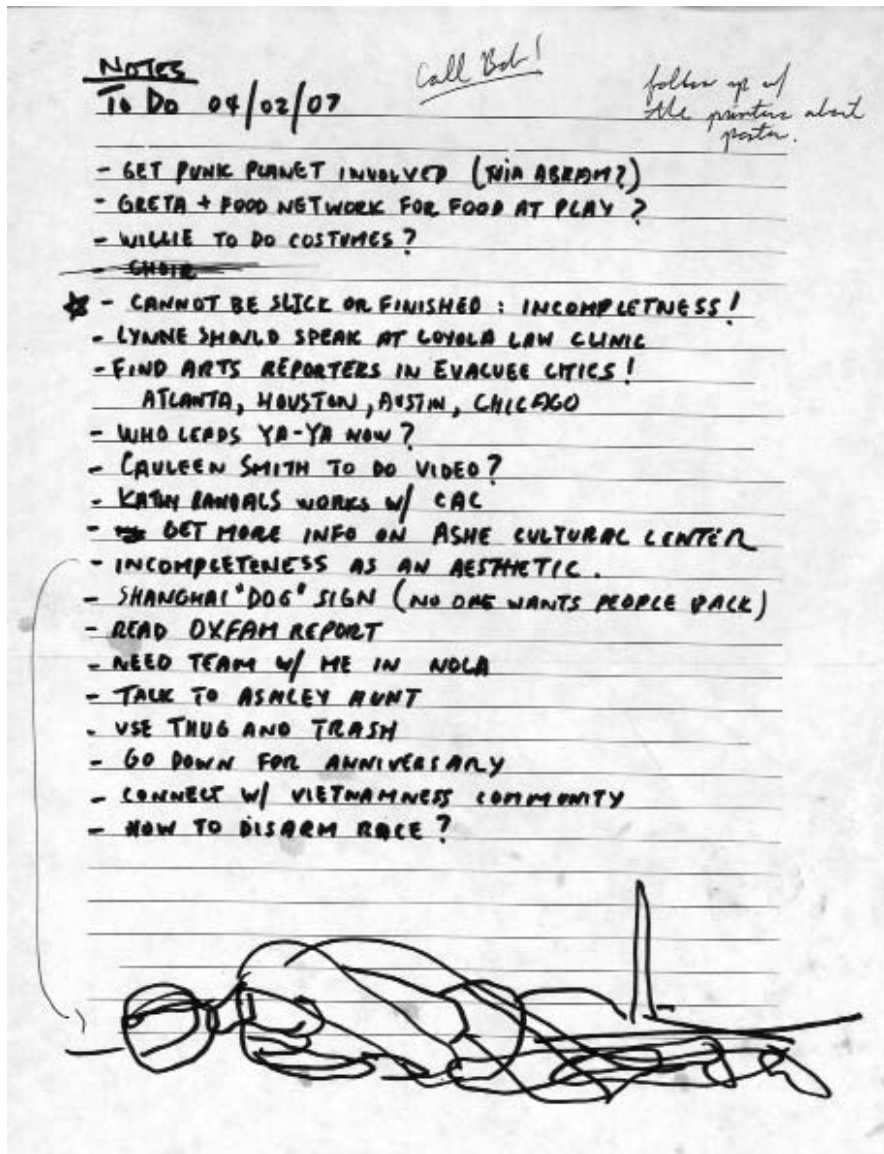 NOTES
Call Bob!
To Do 04/02/07
follow up w/
the printers about
poster.
- GET PUNK PLANET INVOLVED (NIA ABRAM?)
- GRETA + FOOD NETWORK FOR FOOD AT PLAY?
- WILLIE TO DO COSTUMES?
- CHOIR
- CANNOT BE SLICK OR FINISHED : INCOMPLETNESS!
- LYNNE SHOULD SPEAK AT LOYOLA LAW CLINIC
- FIND ARTS REPORTERS IN EVACUEE CITIES!
ATLANTA, HOUSTON, AUSTIN, CHICAGO
- WHO LEADS YA-YA NOW?
- CAULEEN SMITH TO DO VIDEO?
- KATHY RANDALS WORKS W/ CAC
- GET MORE INFO ON ASHE CULTURAL CENTER
- INCOMPLETENESS AS AN AESTHETIC.
- SHANGHAI "DOG" SIGN (NO ONE WANTS PEOPLE BACK)
- READ OXFAM REPORT
- NEED TEAM W/ ME IN NOLA
- TALK TO ASHLEY HUNT
- USE THUG AND TRASH
- GO DOWN FOR ANNIVERSARY
- CONNECT W/ VIETNAMNESS COMMUNITY
- HOW TO DISARM RACE?